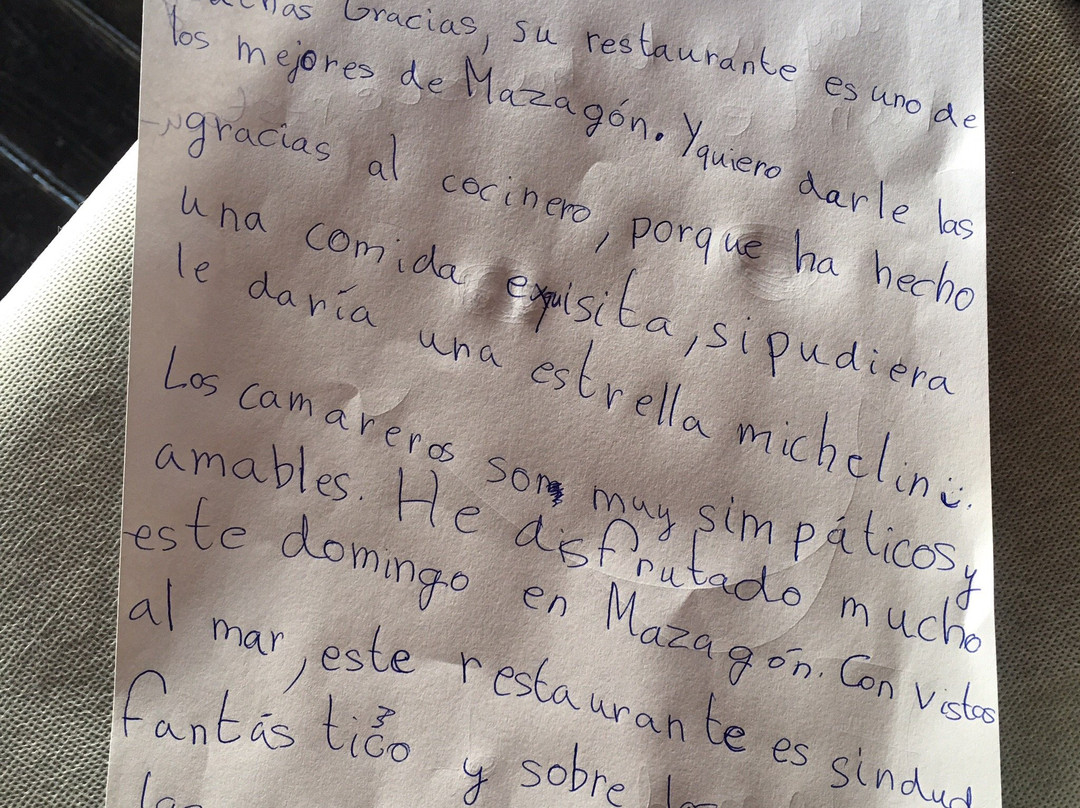 Gracias, su restaurante es uno de
los mejores de Mazagón. Y quiero darle las
gracias al cocinero, porque ha hecho
una comida exquisita, si pudiera
le daría una estrella michelin ü.
Los camareros son muy simpáticos y
amables. He disfrutado mucho
este domingo en Mazagón. Con vistas
al mar, este restaurante es sin dud
fantástico y sobre